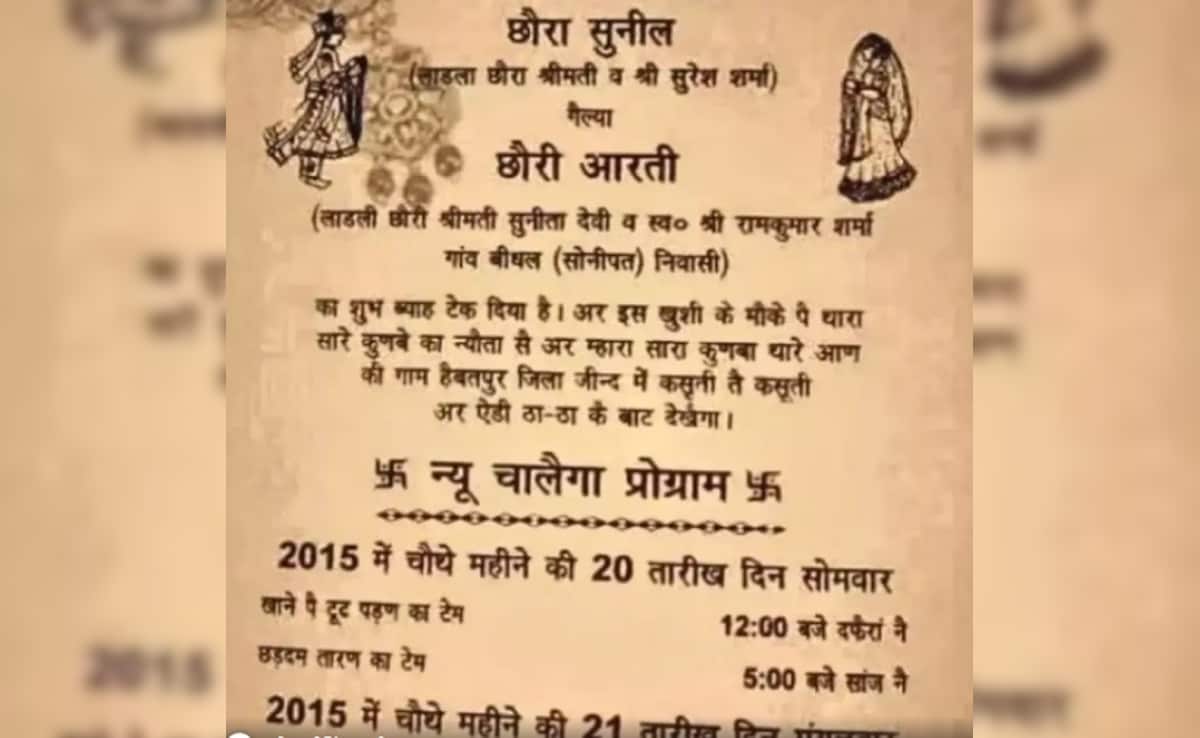 छौरा सुनील
(लाडला छौरा श्रीमती व श्री सुरेश शर्मा)
गैल्या
छौरी आरती
(लाडली छौरी श्रीमती सुनीता देवी व स्व० श्री रामकुमार शर्मा
गांव बीधल (सोनीपत) निवासी)
का शुभ ब्याह टेक दिया है। अर इस खुशी के मौके पै थारा
सारे कुणबे का न्यौता सै अर म्हारा सारा कुणबा थारे आण
की गाम हैबतपुर जिला जीन्द में कसूती तै कसूती
अर ऐडी ठा-ठा कै बाट देखैगा।
卐 न्यू चालैगा प्रोग्राम 卐
2015 में चौथे महीने की 20 तारीख दिन सोमवार
खाने पै टूट पड़ण का टेम 12:00 बजे दफैरां नै
छड़दम तारण का टेम 5:00 बजे सांज नै
2015 में चौथे महीने की 21 तारीख दिन मंगलवार